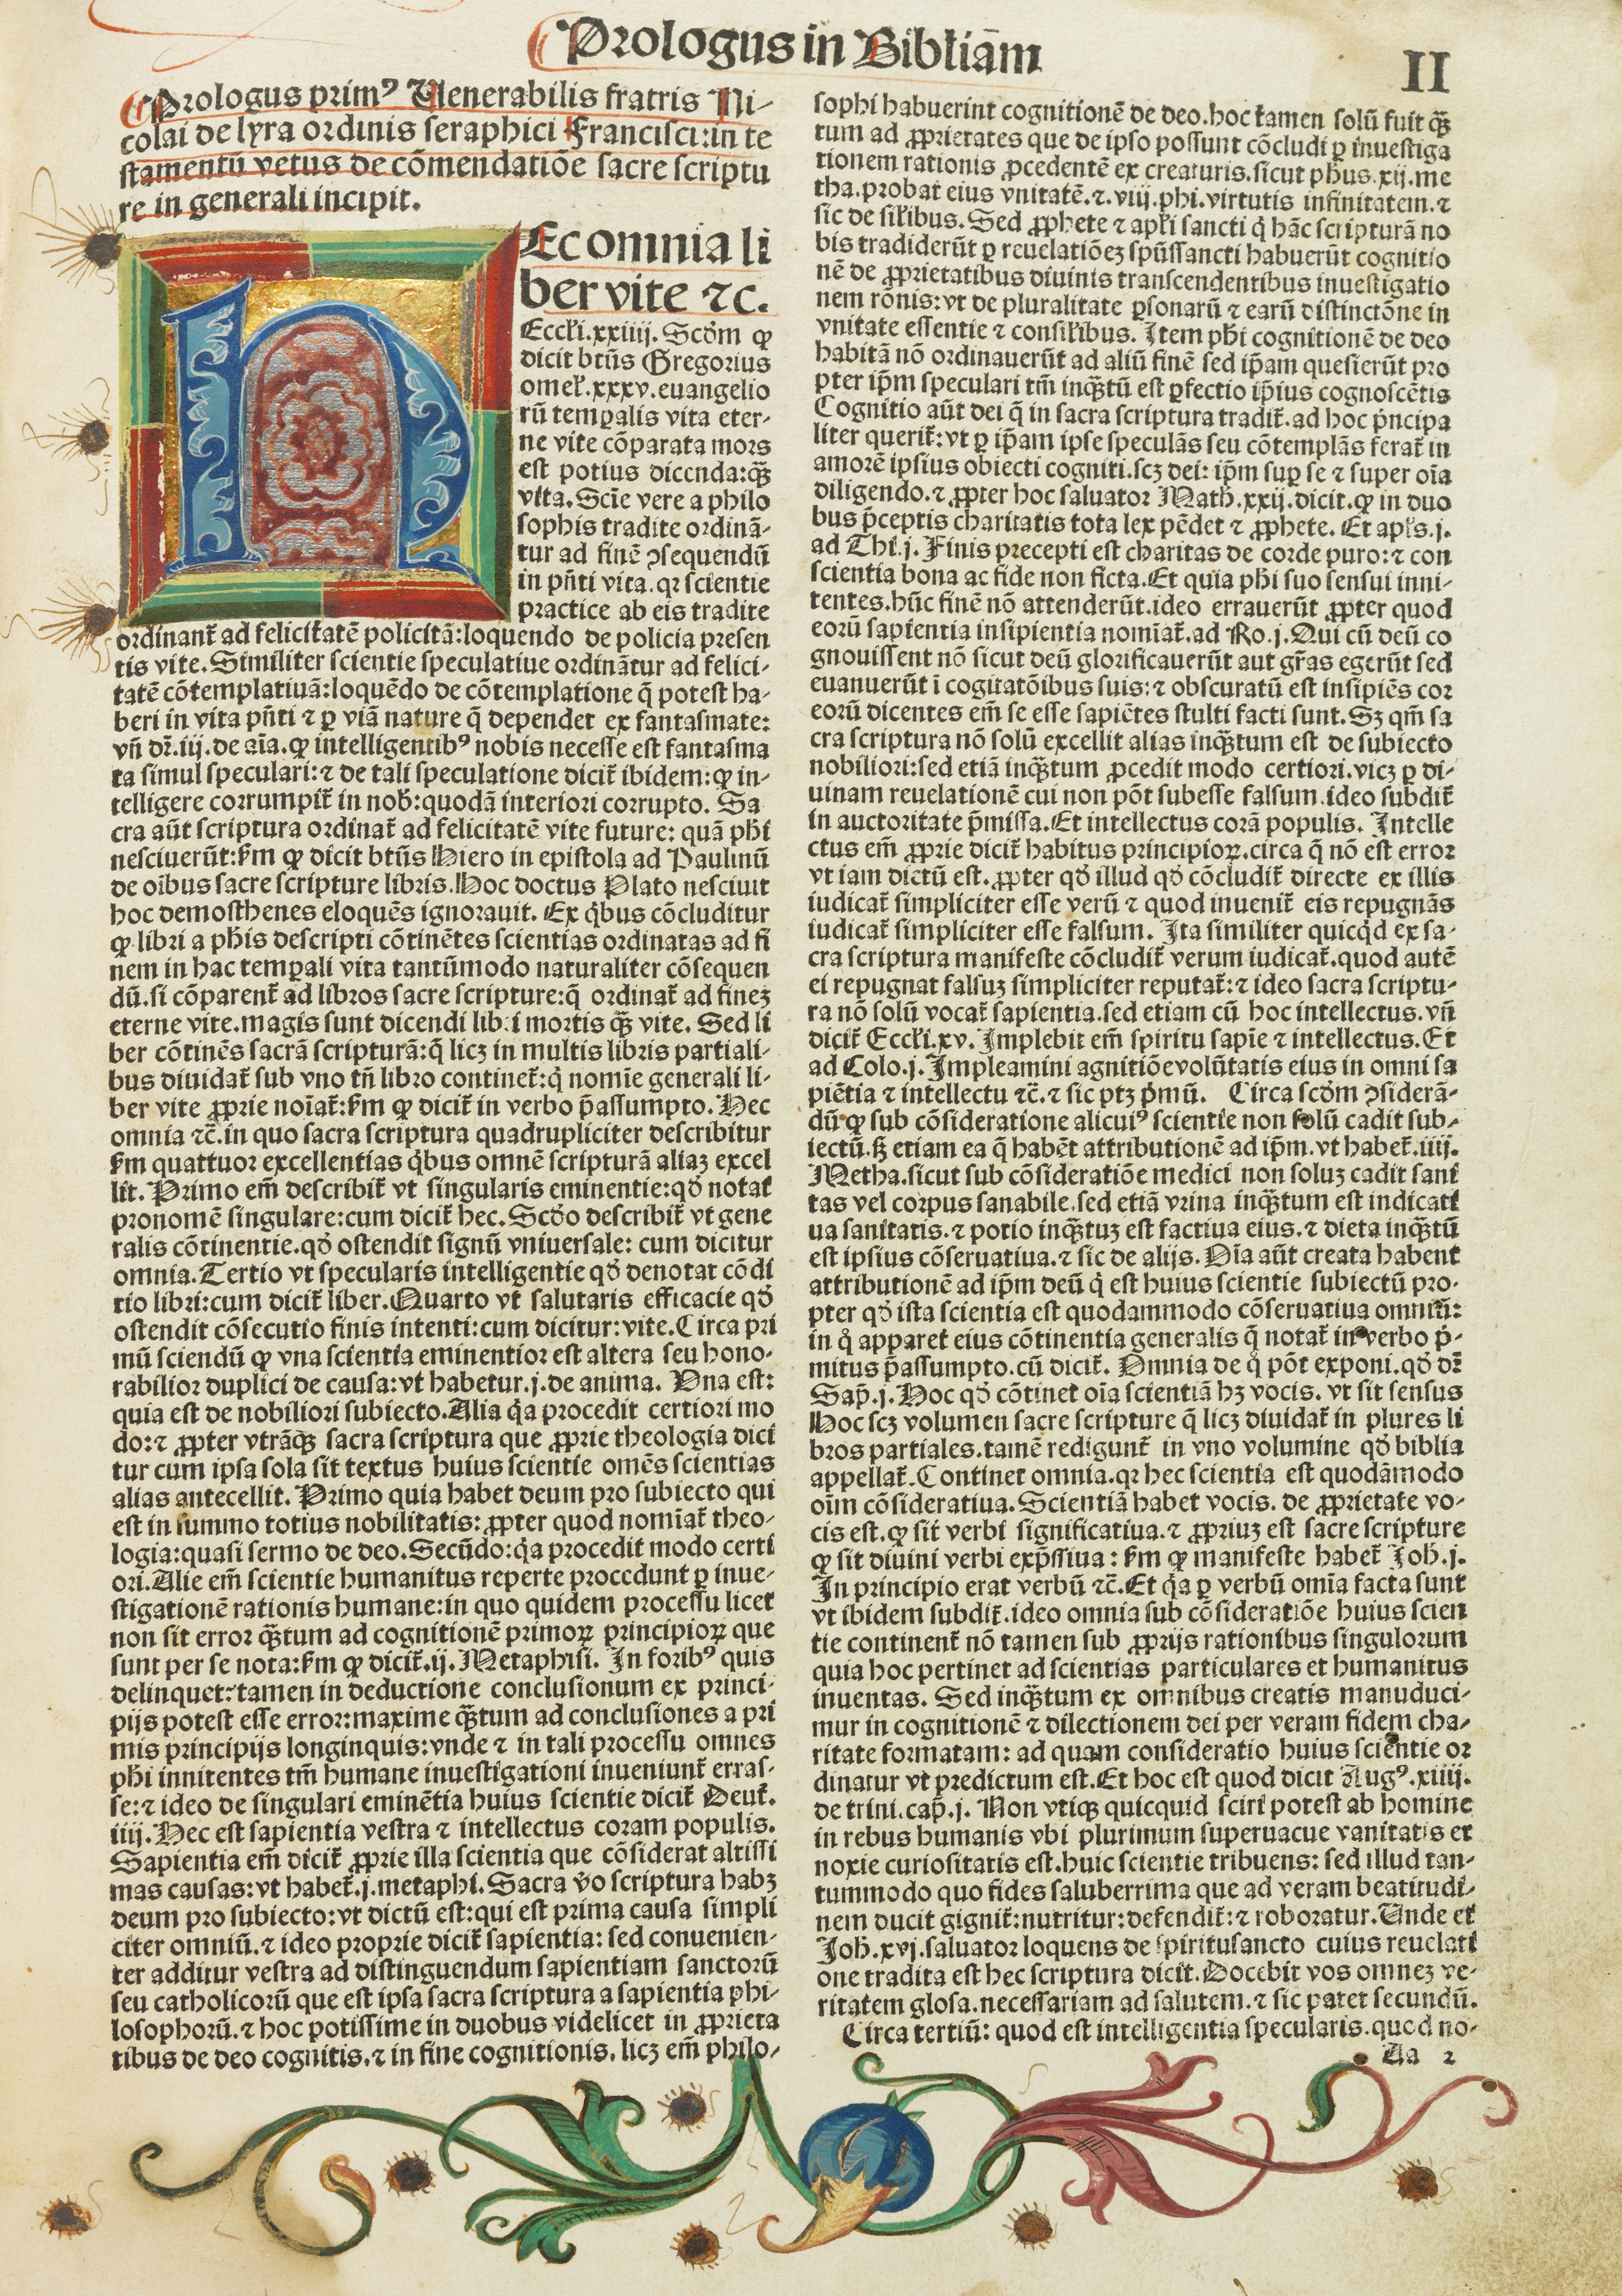 Prologus in Bibliā̄m
II
Prologus prim⁹ Venerabilis fratris Ni-
colai de lyra ordinis seraphici Francisci: in te
stamentū vetus de cōmendatiōe sacre scriptu
re in generali incipit.
hEc omnia li
ber vite ⁊c.
Eccłi.xxiiij. Scd̄m ꝙ
dicit btūs Gregorius
omeł.xxxv.euangelio
rū temꝑalis vita eter-
ne vite cōparata mors
est potius dicenda:q̄ꝫ
vita. Sciē vere a philo
sophis tradite ordinā-
tur ad finē ꝯsequendū
in pn̄ti vita.qꝛ scientie
practice ab eis tradite
ordinant̄ ad felicitatē policitā:loquendo de policia presen
tis vite. Similiter scientie speculatiue ordinātur ad felici-
tatē cōtemplatiuā:loquēdo de cōtemplatione q̄ potest ha-
beri in vita pn̄ti ⁊ ꝑ viā nature q̄ dependet ex fantasmate:
vn̄ dr̄.iij.de aīa.ꝙ intelligentib⁹ nobis necesse est fantasma
ta simul speculari:⁊ de tali speculatione dicit̄ ibidem:ꝙ in-
telligere corrumpit̄ in nob̄:quodā interiori corrupto. Sa
cra aūt scriptura ordinat̄ ad felicitatē vite future: quā ph̄i
nesciuerūt:ẜm ꝙ dicit btūs Hiero in epistola ad Paulinū
de oībus sacre scripture libris.Hoc doctus Plato nesciuit
hoc demosthenes eloquēs ignorauit. Ex q̇bus cōcluditur
ꝙ libri a ph̄is descripti cōtinētes scientias ordinatas ad fi
nem in hac temꝑali vita tantūmodo naturaliter cōsequen
dū.si cōparent̄ ad libros sacre scripture:q̄ ordinat̄ ad finez
eterne vite.magis sunt dicendi libri mortis q̄ꝫ vite. Sed li
ber cōtinēs sacrā scripturā:q̄ licꝫ in multis libris partiali-
bus diuidat̄ sub vno tn̄ libro continet̄:q̇ nomīe generali li-
ber vite ꝓprie noīat̄:ẜm ꝙ dicit̄ in verbo p̄assumpto. Hec
omnia ⁊c̄.in quo sacra scriptura quadrupliciter describitur
ẜm quattuor excellentias q̇bus omnē scripturā aliaꝫ excel
lit. Primo em̄ describit̄ vt singularis eminentie:qd̄ notat
pronomē singulare:cum dicit̄ hec. Scd̄o describit̄ vt gene
ralis cōtinentie.qd̄ ostendit signū vniuersale: cum dicitur
omnia.Tertio vt specularis intelligentie qd̄ denotat cōdi
tio libri:cum dicit̄ liber.Quarto vt salutaris efficacie qd̄
ostendit cōsecutio finis intenti:cum dicitur:vite.Circa pri
mū sciendū ꝙ vna scientia eminentior est altera seu hono-
rabilior duplici de causa:vt habetur.j.de anima. Vna est:
quia est de nobiliori subiecto.Alia q̇a procedit certiori mo
do:⁊ ꝓpter vtrāqꝫ sacra scriptura que ꝓprie theologia dici
tur cum ipsa sola sit textus huius scientie omēs scientias
alias antecellit. Primo quia habet deum pro subiecto qui
est in summo totius nobilitatis: ꝓpter quod nomīat̄ theo-
logia:quasi sermo de deo.Secūdo:q̇a procedit modo certi
ori.Alie em̄ scientie humanitus reperte procedunt ꝑ inue-
stigationē rationis humane:in quo quidem processu licet
non sit error q̄ꝫtum ad cognitionē primoꝝ principioꝝ que
sunt per se nota:ẜm ꝙ dicit̄.ij. Metaphisi. In forib⁹ quis
delinquet:tamen in deductione conclusionum ex princi-
pijs potest esse error:maxime q̄ꝫtum ad conclusiones a pri
mis principijs longinquis:vnde ⁊ in tali processu omnes
ph̄i innitentes tm̄ humane inuestigationi inueniunt̄ erras-
se:⁊ ideo de singulari eminētia huius scientie dicit̄ Deut̄.
iiij.Hec est sapientia vestra ⁊ intellectus coram populis.
Sapientia em̄ dicit̄ ꝓprie illa scientia que cōsiderat altissi
mas causas:vt habet̄.j.metaphi. Sacra v̄o scriptura habꝫ
deum pro subiecto:vt dictū est:qui est prima causa simpli
citer omniū.⁊ ideo proprie dicit̄ sapientia: sed conuenien-
ter additur vestra ad distinguendum sapientiam sanctorū
seu catholicorū que est ipsa sacra scriptura a sapientia phi-
losophorū.⁊ hoc potissime in duobus videlicet in ꝓprieta
tibus de deo cognitis.⁊ in fine cognitionis. licꝫ em̄ philo-
sophi habuerint cognitionē de deo.hoc tamen solū fuit q̄ꝫ
tum ad ꝓprietates que de ipso possunt cōcludi ꝑ inuestiga
tionem rationis ꝓcedentē ex creaturis.sicut ph̄us.xij.me
tha.probat eius vnitatē.⁊.viij.phi.virtutis infinitatem.⁊
sic de sił̄ibus. Sed ꝓphete ⁊ apłi sancti q̇ hāc scripturā no
bis tradiderūt ꝑ reuelatiōeꝫ spūssancti habuerūt cognitio
nē de ꝓprietatibus diuinis transcendentibus inuestigatio
nem rōnis:vt de pluralitate ꝑsonarū ⁊ earū distinctōne in
vnitate essentie ⁊ consił̄ibus. Item ph̄i cognitionē de deo
habitā nō ordinauerūt ad aliū finē sed ip̄am quesierūt pro
pter ip̄m speculari tm̄ inq̄ꝫtū est ꝑfectio ip̄ius cognoscētis
Cognitio aūt dei q̄ in sacra scriptura tradit̄.ad hoc p̄ncipa
liter querit̄:vt ꝑ ip̄am ipse speculās seu cōtemplās ferat̄ in
amorē ipsius obiecti cogniti.scꝫ dei: ip̄m suꝑ se ⁊ super oīa
diligendo.⁊ ꝓpter hoc saluator Math̄.xxij.dicit.ꝙ in duo
bus p̄ceptis charitatis tota lex pēdet ⁊ ꝓphete. Et apłs.j.
ad Thi.j. Finis precepti est charitas de corde puro:⁊ con
scientia bona ac fide non ficta.Et quia ph̄i suo sensui inni-
tentes.hūc finē nō attenderūt.ideo errauerūt ꝓpter quod
eorū sapientia insipientia nomīat̄.ad Ro.j.Qui cū deū co
gnouissent nō sicut deū glorificauerūt aut gr̄as egerūt sed
euanuerūt ī cogitatōibus suis:⁊ obscuratū est insipiēs cor
eorū dicentes em̄ se esse sapiētes stulti facti sunt. Sꝫ qm̄ sa
cra scriptura nō solū excellit alias inq̄ꝫtum est de subiecto
nobiliori:sed etiā inq̄ꝫtum ꝓcedit modo certiori.vicꝫ ꝑ di-
uinam reuelationē cui non pōt subesse falsum.ideo subdit̄
in auctoritate p̄missa.Et intellectus corā populis. Intelle
ctus em̄ ꝓprie dicit̄ habitus principioꝝ.circa q̄ nō est error
vt iam dictū est.ꝓpter qd̄ illud qd̄ cōcludit̄ directe ex illis
iudicat̄ simpliciter esse verū ⁊ quod inuenit̄ eis repugnās
iudicat̄ simpliciter esse falsum. Ita similiter quicq̇d ex sa-
cra scriptura manifeste cōcludit̄ verum iudicat̄.quod autē
ei repugnat falsuꝫ simpliciter reputat̄:⁊ ideo sacra scriptu-
ra nō solū vocat̄ sapientia.sed etiam cū hoc intellectus.vn̄
dicit̄ Eccłi.xv. Implebit em̄ spiritu sapīe ⁊ intellectus.Et
ad Colo.j. Impleamini agnitiōe volūtatis eius in omni sa
piētia ⁊ intellectu ⁊c̄.⁊ sic ptꝫ ṗmū. Circa scd̄m ꝯsiderā-
dū ꝙ sub cōsideratione alicui⁹ scientie non solū cadit sub-
iectū.ẜꝫ etiam ea q̄ habēt attributionē ad ip̄m.vt habet̄.iiij.
Metha.sicut sub cōsideratiōe medici non soluꝫ cadit sani
tas vel corpus sanabile.sed etiā vrina inq̄ꝫtum est indicati
ua sanitatis.⁊ potio inq̄ꝫtuꝫ est factiua eius.⁊ dieta inq̄ꝫtū
est ipsius cōseruatiua.⁊ sic de alijs. Oīa aūt creata habent
attributionē ad ip̄m deū q̇ est huius scientie subiectū pro-
pter qd̄ ista scientia est quodammodo cōseruatiua omniū:
in q̊ apparet eius cōtinentia generalis q̄ notat̄ in verbo p̄-
mitus p̄assumpto.cū dicit̄. Omnia de q̊ pōt exponi.qd̄ dr̄
Sap̄.j. Hoc qd̄ cōtinet oīa scientiā hꝫ vocis. vt sit sensus
Hoc scꝫ volumen sacre scripture q̄ licꝫ diuidat̄ in plures li
bros partiales.tamē redigunt̄ in vno volumine qd̄ biblia
appellat̄.Continet omnia.qꝛ hec scientia est quodāmodo
oīm cōsideratiua.Scientiā habet vocis. de ꝓprietate vo-
cis est.ꝙ sit verbi significatiua.⁊ ꝓpriuꝫ est sacre scripture
ꝙ sit diuini verbi exp̄ssiua: ẜm ꝙ manifeste habet̄ Joh̄.j.
In principio erat verbū ⁊c̄.Et q̇a ꝑ verbū omīa facta sunt
vt ibidem subdit̄.ideo omnia sub cōsideratiōe huius scien
tie continent̄ nō tamen sub ꝓprijs rationibus singulorum
quia hoc pertinet ad scientias particulares et humanitus
inuentas. Sed inq̄ꝫtum ex omnibus creatis manuduci-
mur in cognitionē ⁊ dilectionem dei per veram fidem cha-
ritate formatam: ad quam consideratio huius scientie or
dinatur vt predictum est.Et hoc est quod dicit Aug⁹.xiiij.
de trini.cap̄.j. Non vtiqꝫ quicquid sciri potest ab homine
in rebus humanis vbi plurimum superuacue vanitatis et
noxie curiositatis est.huic scientie tribuens: sed illud tan-
tummodo quo fides saluberrima que ad veram beatitudi-
nem ducit gignit̄:nutritur:defendit̄:⁊ roboratur.Unde et
Joh̄.xvj.saluator loquens de spiritusancto cuius reuelati
one tradita est hec scriptura dicit.Docebit vos omneꝫ ve-
ritatem glosa.necessariam ad salutem.⁊ sic patet secundū.
Circa tertiū: quod est intelligentia specularis.quod no-
Aa 2